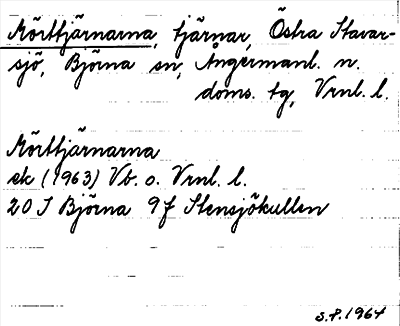 Mörttjärnarna, tjärnar, Östra Stavar-
sjö, Björna sn, Ångermanl. n.
doms. tg, Vrnl. l.
Mörttjärnarna
ek (1963) Vb. o. Vrnl. l.
20 J Björna 9f Stensjökullen
S.P. 1964